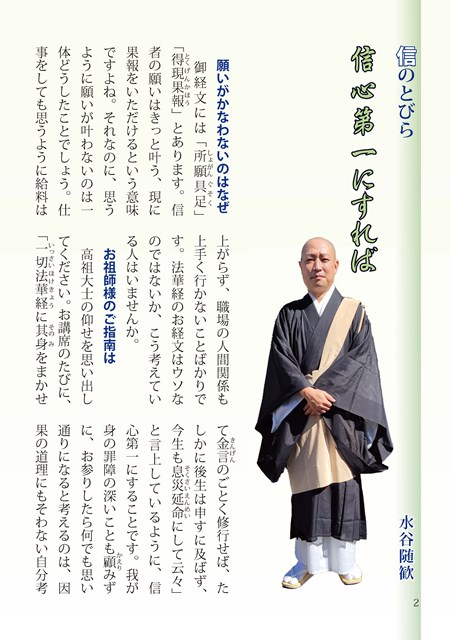 信のとびら
信心第一にすれば
水谷随歓
願いがかなわないのはなぜ
御経文には「所願具足」
「得現果報」とあります。信
者の願いはきっと叶う、現に
果報をいただけるという意味
ですよね。それなのに、思う
ように願いが叶わないのは一
体どうしたことでしょう。仕
事をしても思うように給料は
上がらず、職場の人間関係も
上手く行かないことばかりで
す。法華経のお経文はウソな
のではないか、こう考えてい
る人はいませんか。
お祖師様のご指南は
高祖大士の仰せを思い出し
てください。お講席のたびに、
「一切法華経に其身をまかせ
て金言のごとく修行せば、た
しかに後生は申すに及ばず、
今生も息災延命にして云々」
と言上しているように、信
心第一にすることです。我が
身の罪障の深いことも顧みず
に、お参りしたら何でも思い
通りになると考えるのは、因
果の道理にもそわない自分考
2